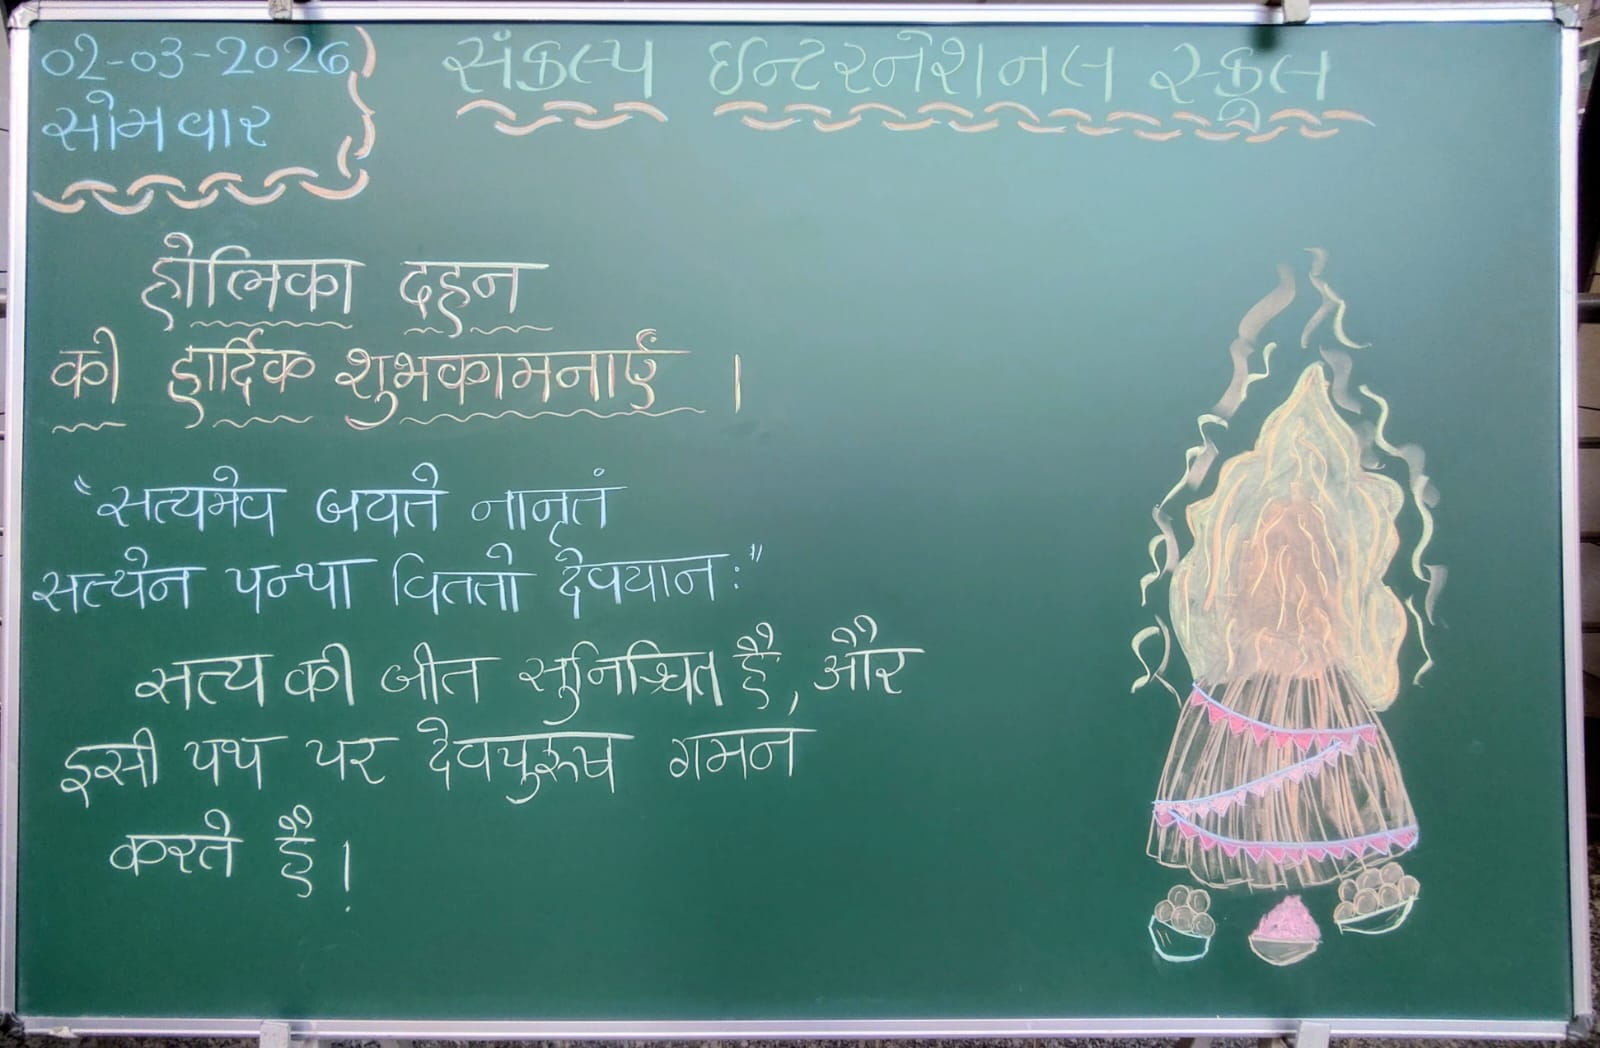 02-03-2026
सोमवार
संकल्प इन्टरनेशनल स्कूल
होलिका दहन
की हार्दिक शुभकामनाएँ ।
"सत्यमेव जयते नानृतं
सत्येन पन्था विततो देवयानः"
सत्य की जीत सुनिश्चित है, और
इसी पथ पर देवपुरूष गमन
करते हैं।